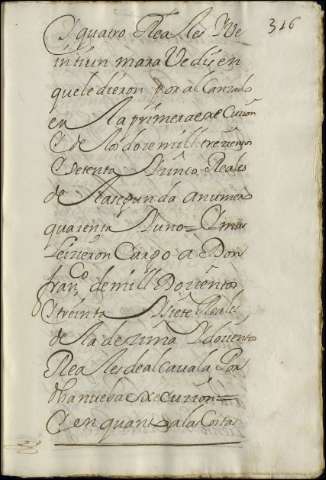 316
y quatro Reales Y Ve
intiun maraVedis en
que le dieron por al Canzado
en la primera exeCuzion
de los doze mill trezientos
Y setenta Y Çinco Reales
de la segunda a numero
quarenta Y uno = Y mas
le izieron Cargo a Don
fran.co de mill Dozientos
Y treinta Y Siete Reales
de la dezima Y dozientos
Reales de alCavala Por
dha nueba exeCuzion =
Y en quanto a la Costas